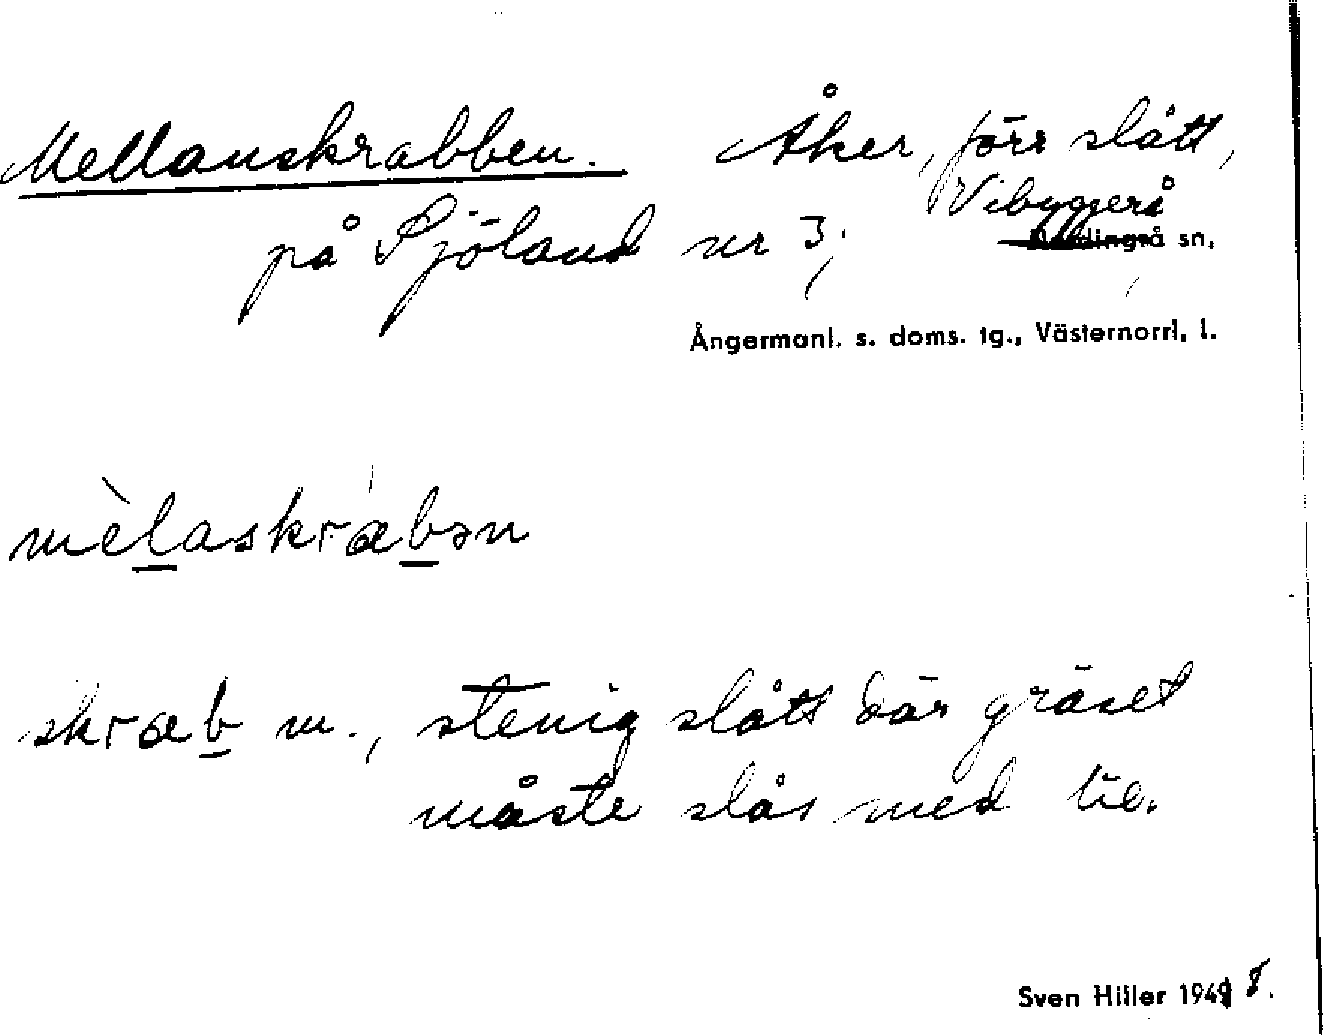 Mellanskrabben. Åker, förr slått,
på Sjöland nr 3; Vibyggerå
Nordingrå sn,
Ångermanl. s. doms. tg., Västernorrl. l.
mèlaskræbən
skræb m., stenig slått där gräset
måste slås med lie.
Sven Hiller 1948.